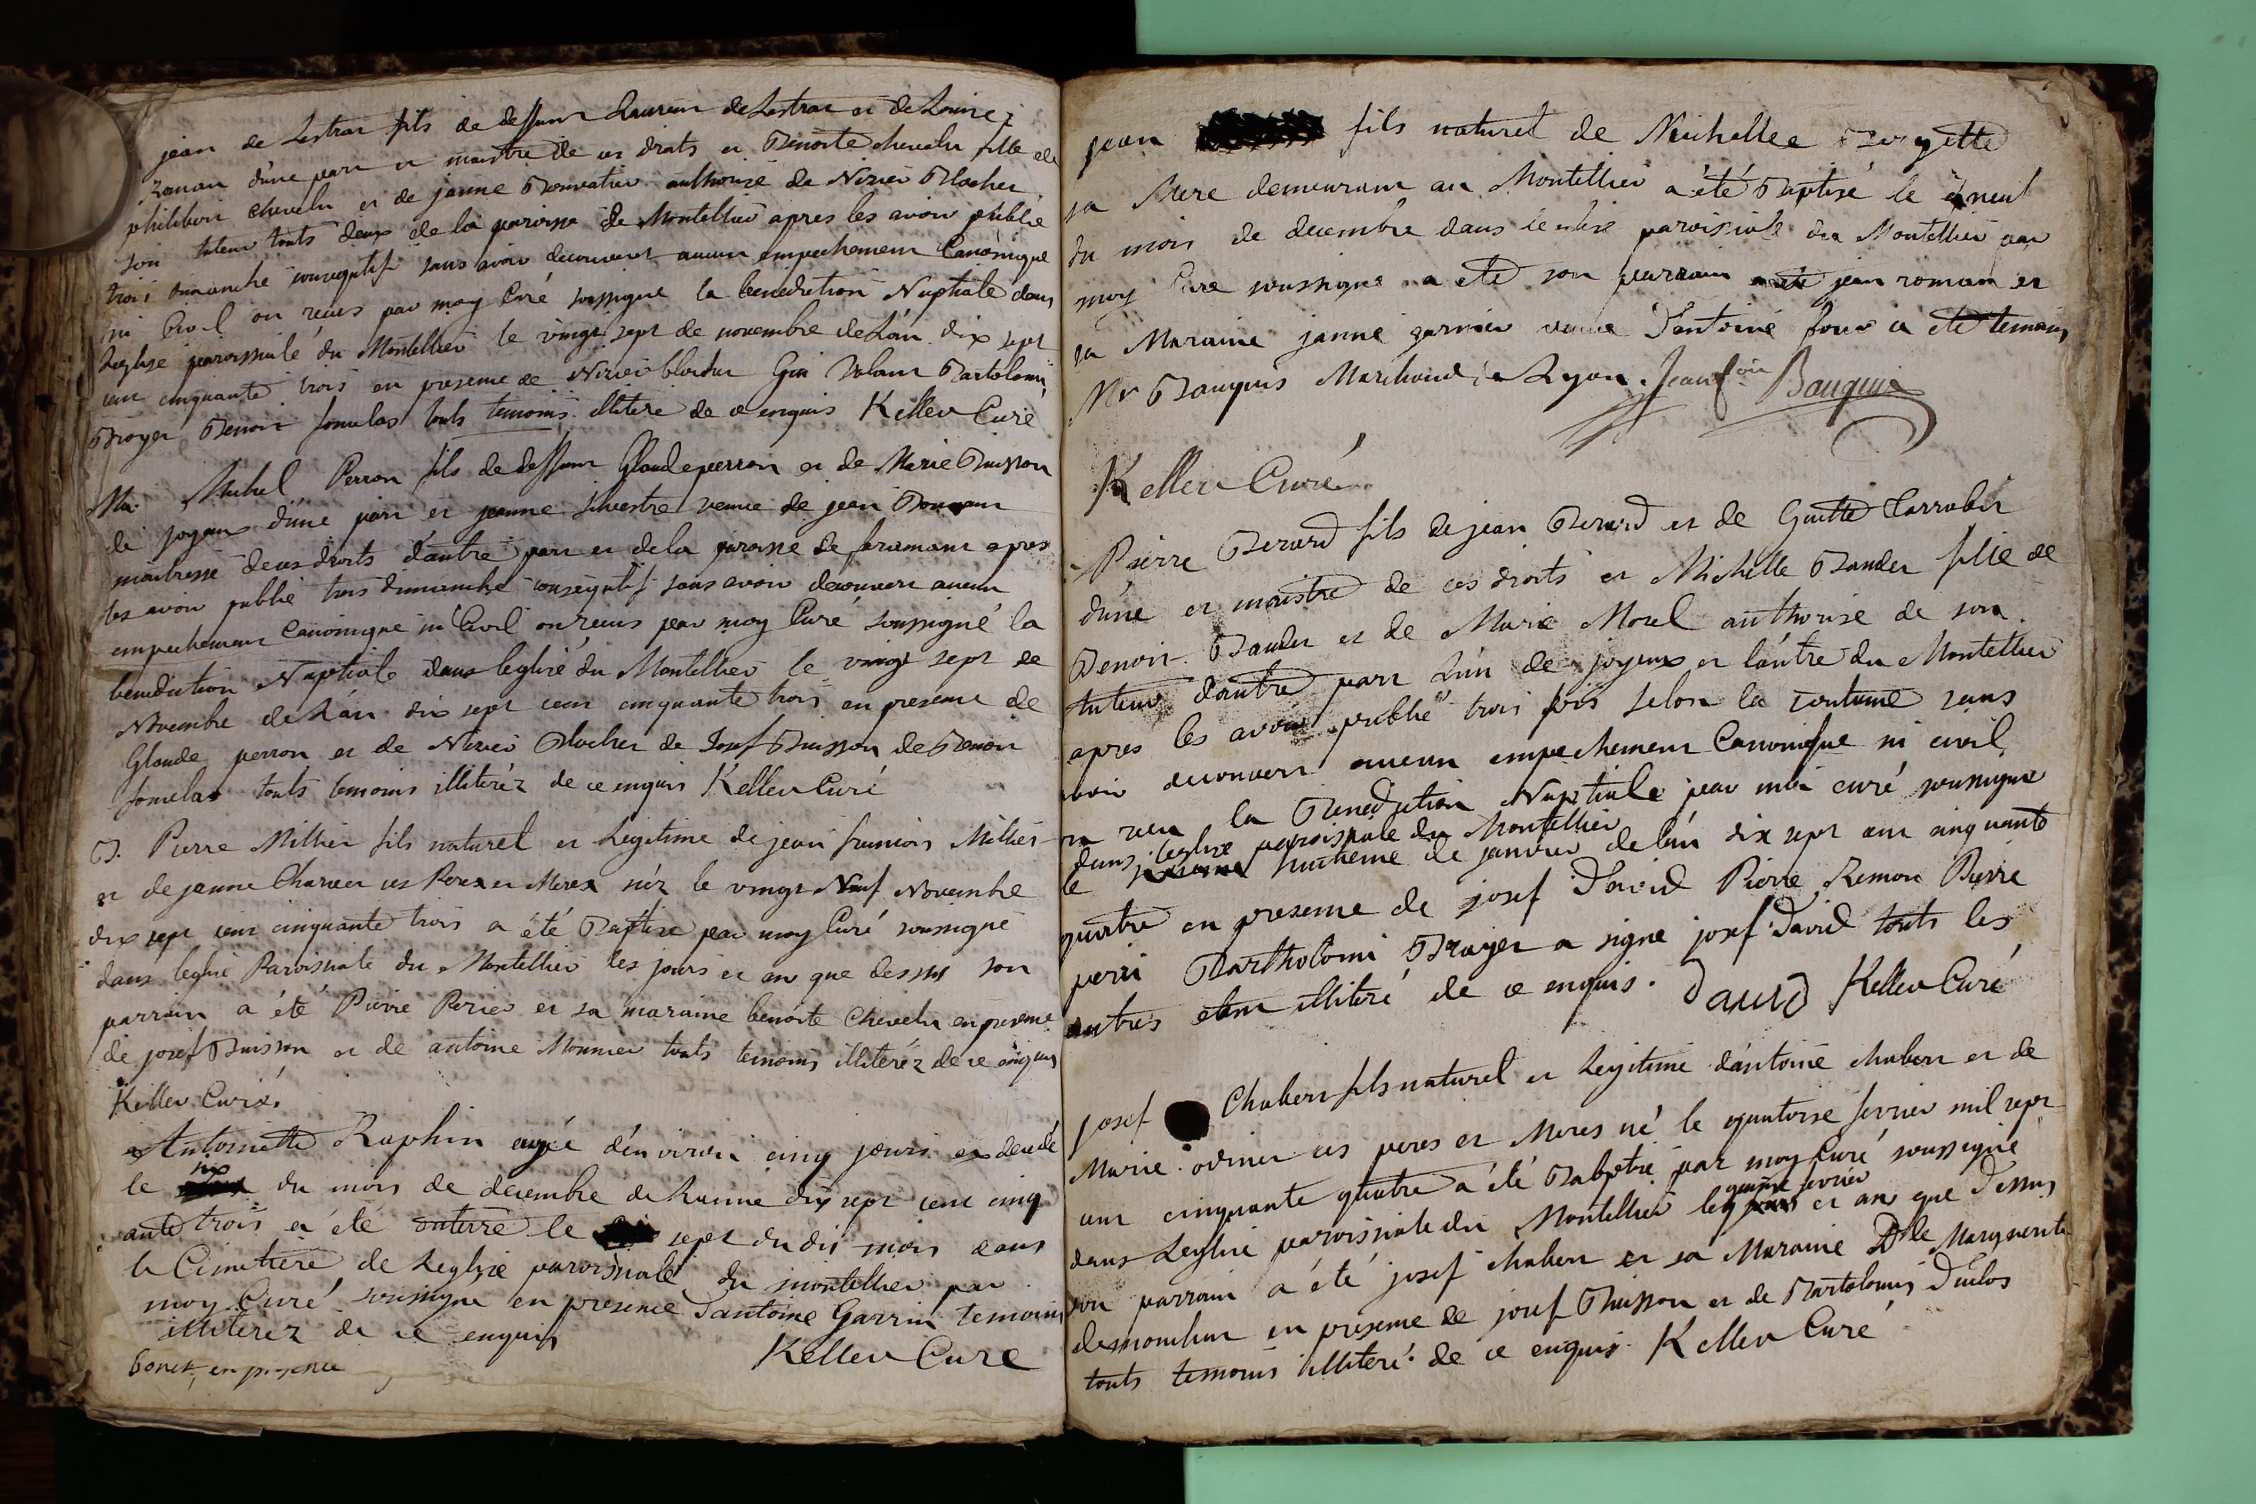 jean de Lestrar fils de deffunt Laurean de Lestrar et de Louise
roman d'une part et maistre de ces droits et Benoite chevelu fille de
philibert chevelu et de janne authorise de Nizier Blocher
son tuteur touts deux de la paroisse de Montellier apres les avoir publié
trois dimanche consequtif sans avoir decouvert aucun empechement Canonique
ni Civil on reçus par moy Curé soussigne la benediction Nuptiale dans
Leglise paroissiale du Montellier le vingt sept de novembre de Lan dix sept
cent cinquante trois en presence de Nizier Bartolomi
Broyer Benoit fomelas touts temoins illitere de ce enquis Keller Curé
Ma. Michel Perron fils de deffunt Glaude perron et de Marie Buisson
de joyeux d'une part et jeanne silvestre veuve de jean
maitresse de ces droits d'autre part et de la paroisse de faramant apres
les avoir publié trois dimanche consequtif sans avoir decouvert aucun
empechement Canonique ni Civil on reçus par moy Curé soussigné la
benediction Nuptiale dans leglise du Montellier le vingt sept de
Novembre de Lan dix sept cent cinquante trois en presence de
Glaude perron et de Nizier Blocher de Josef Buisson de Benoit
fomelas touts temoins illiteréz de ce enquis Keller Curé
B. Pierre Millier fils naturel et Legitime de jean francois Millier
et de jeanne Charvet ces Peres et Meres néz le vingt Neuf Novembre
dix sept cent cinquante trois a été Baptise par moy Curé soussigne
dans leglise Paroissiale du Montellier les jours et an que dessus son
parrain a été Pierre Perier et sa maraine benoite Chevelu en presence
de josef Buisson et de antoine Monnier touts temoins illiteréz de ce enquis
Keller Curé.
Antoinette Raphin agée d'environ cinq jours et decedé
le six du mois de decembre de Lannée dix sept cent cinq
ante trois a été enterré le sept du dit mois dans
le Cimetiere de Leglise paroissiale du montellier par
moy Curé soussigne en presence d'antoine Garrin temoins
illiterez de ce enquis
bonet, en presence Keller Cure
jean fils naturel de Michellee Bergette
sa Mere demeurant au Montellier a été Baptisé le neuf
du mois de decembre dans leglise paroissiale du Montellier par
moy Cure soussigne a eté son parrain jean roman et
sa Maraine janne garnier veuve d'antoine four a eté temoins
Mr Bauquis Marchand a Lyon. Jean f.ois Bauquis
Keller Curé
Pierre Berard fils de jean Berard et de Guitte Carrabin
d'une et maistre de ces droits et Michelle Bander fille de
Benoit Bander et de Marie Morel authorise de son
tuteur dautre part Lun de joyeux et lautre du Montellier
apres les avoir publié trois fois selon la coutume sans
avoir decouvert aucun empechement Canonique ni civil
on recu la Benediction Nuptiale par moi curé soussigne
dans leglise paroissiale du Montellier
le huitieme de janvier de lan dix sept cent cinquante
quatre en presence de josef David Pierre Remon Pierre
perri Bartholomi Broyer a signe josef David touts les
autres etant illiteré de ce enquis. David Keller Curé
josef Chabert fils naturel et Legitime d'antoine chabert et de
Marie ces peres et Meres né le quatorse fevrier mil sept
cent cinquante quatre a été Babptise par moy Curé soussigné
dans Leglise paroissiale du Montellier le quinse fevrier et an que Dessus
son parrain a été josef chabert et sa Maraine Dlle Marguerite
en presence de josef Buisson et de Bartolomi Duclos
touts temoins illiteré de ce enquis. Keller Curé